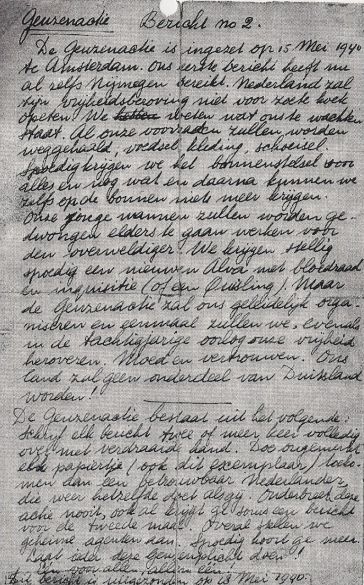 Geuzenactie Bericht no 2.
De Geuzenactie is ingezet op 15 Mei 1940
te Amsterdam. Ons eerste bericht heeft nu
al zelfs Nijmegen bereikt. Nederland zal
zijn vrijheidsberoving niet voor zoete koek
opeten. We weten wat ons te wachten
staat. Al onze voorraden zullen worden
weggehaald, voedsel, kleding, schoeisel.
Spoedig krijgen we het bonnenstelsel voor
alles en nog wat en daarna kunnen we
zelfs op de bonnen niets meer krijgen.
Onze jonge mannen zullen worden ge-
dwongen elders te gaan werken voor
den overweldiger. We krijgen stellig
spoedig een nieuwen Alva met bloedraad
en inquisitie (of een Quisling). Maar
de Geuzenactie zal ons geleidelijk orga-
niseren en eenmaal zullen we, evenals
in de tachtigjarige oorlog onze vrijheid
heroveren. Moed en vertrouwen. Ons
land zal geen onderdeel van Duitsland
worden!
De Geuzenactie bestaat uit het volgende:
Schrijf elk bericht twee of meer keer volledig
over met verdraaide hand. Los ongemerkt
elk papiertje (ook dit exemplaar)
men aan een betrouwbaar Nederlander,
die weer hetzelfde doet als gy. Onderbreek deze
actie nooit, ook al krijgt ge soms een bericht
voor de tweede maal. Overal stellen we
geheime agenten aan. Spoedig hoort ge meer.
Laat ieder deze Geuzenplicht doen!
Een voor allen, allen een!
Dit bericht is uitgezonden op 18 Mei 1940.